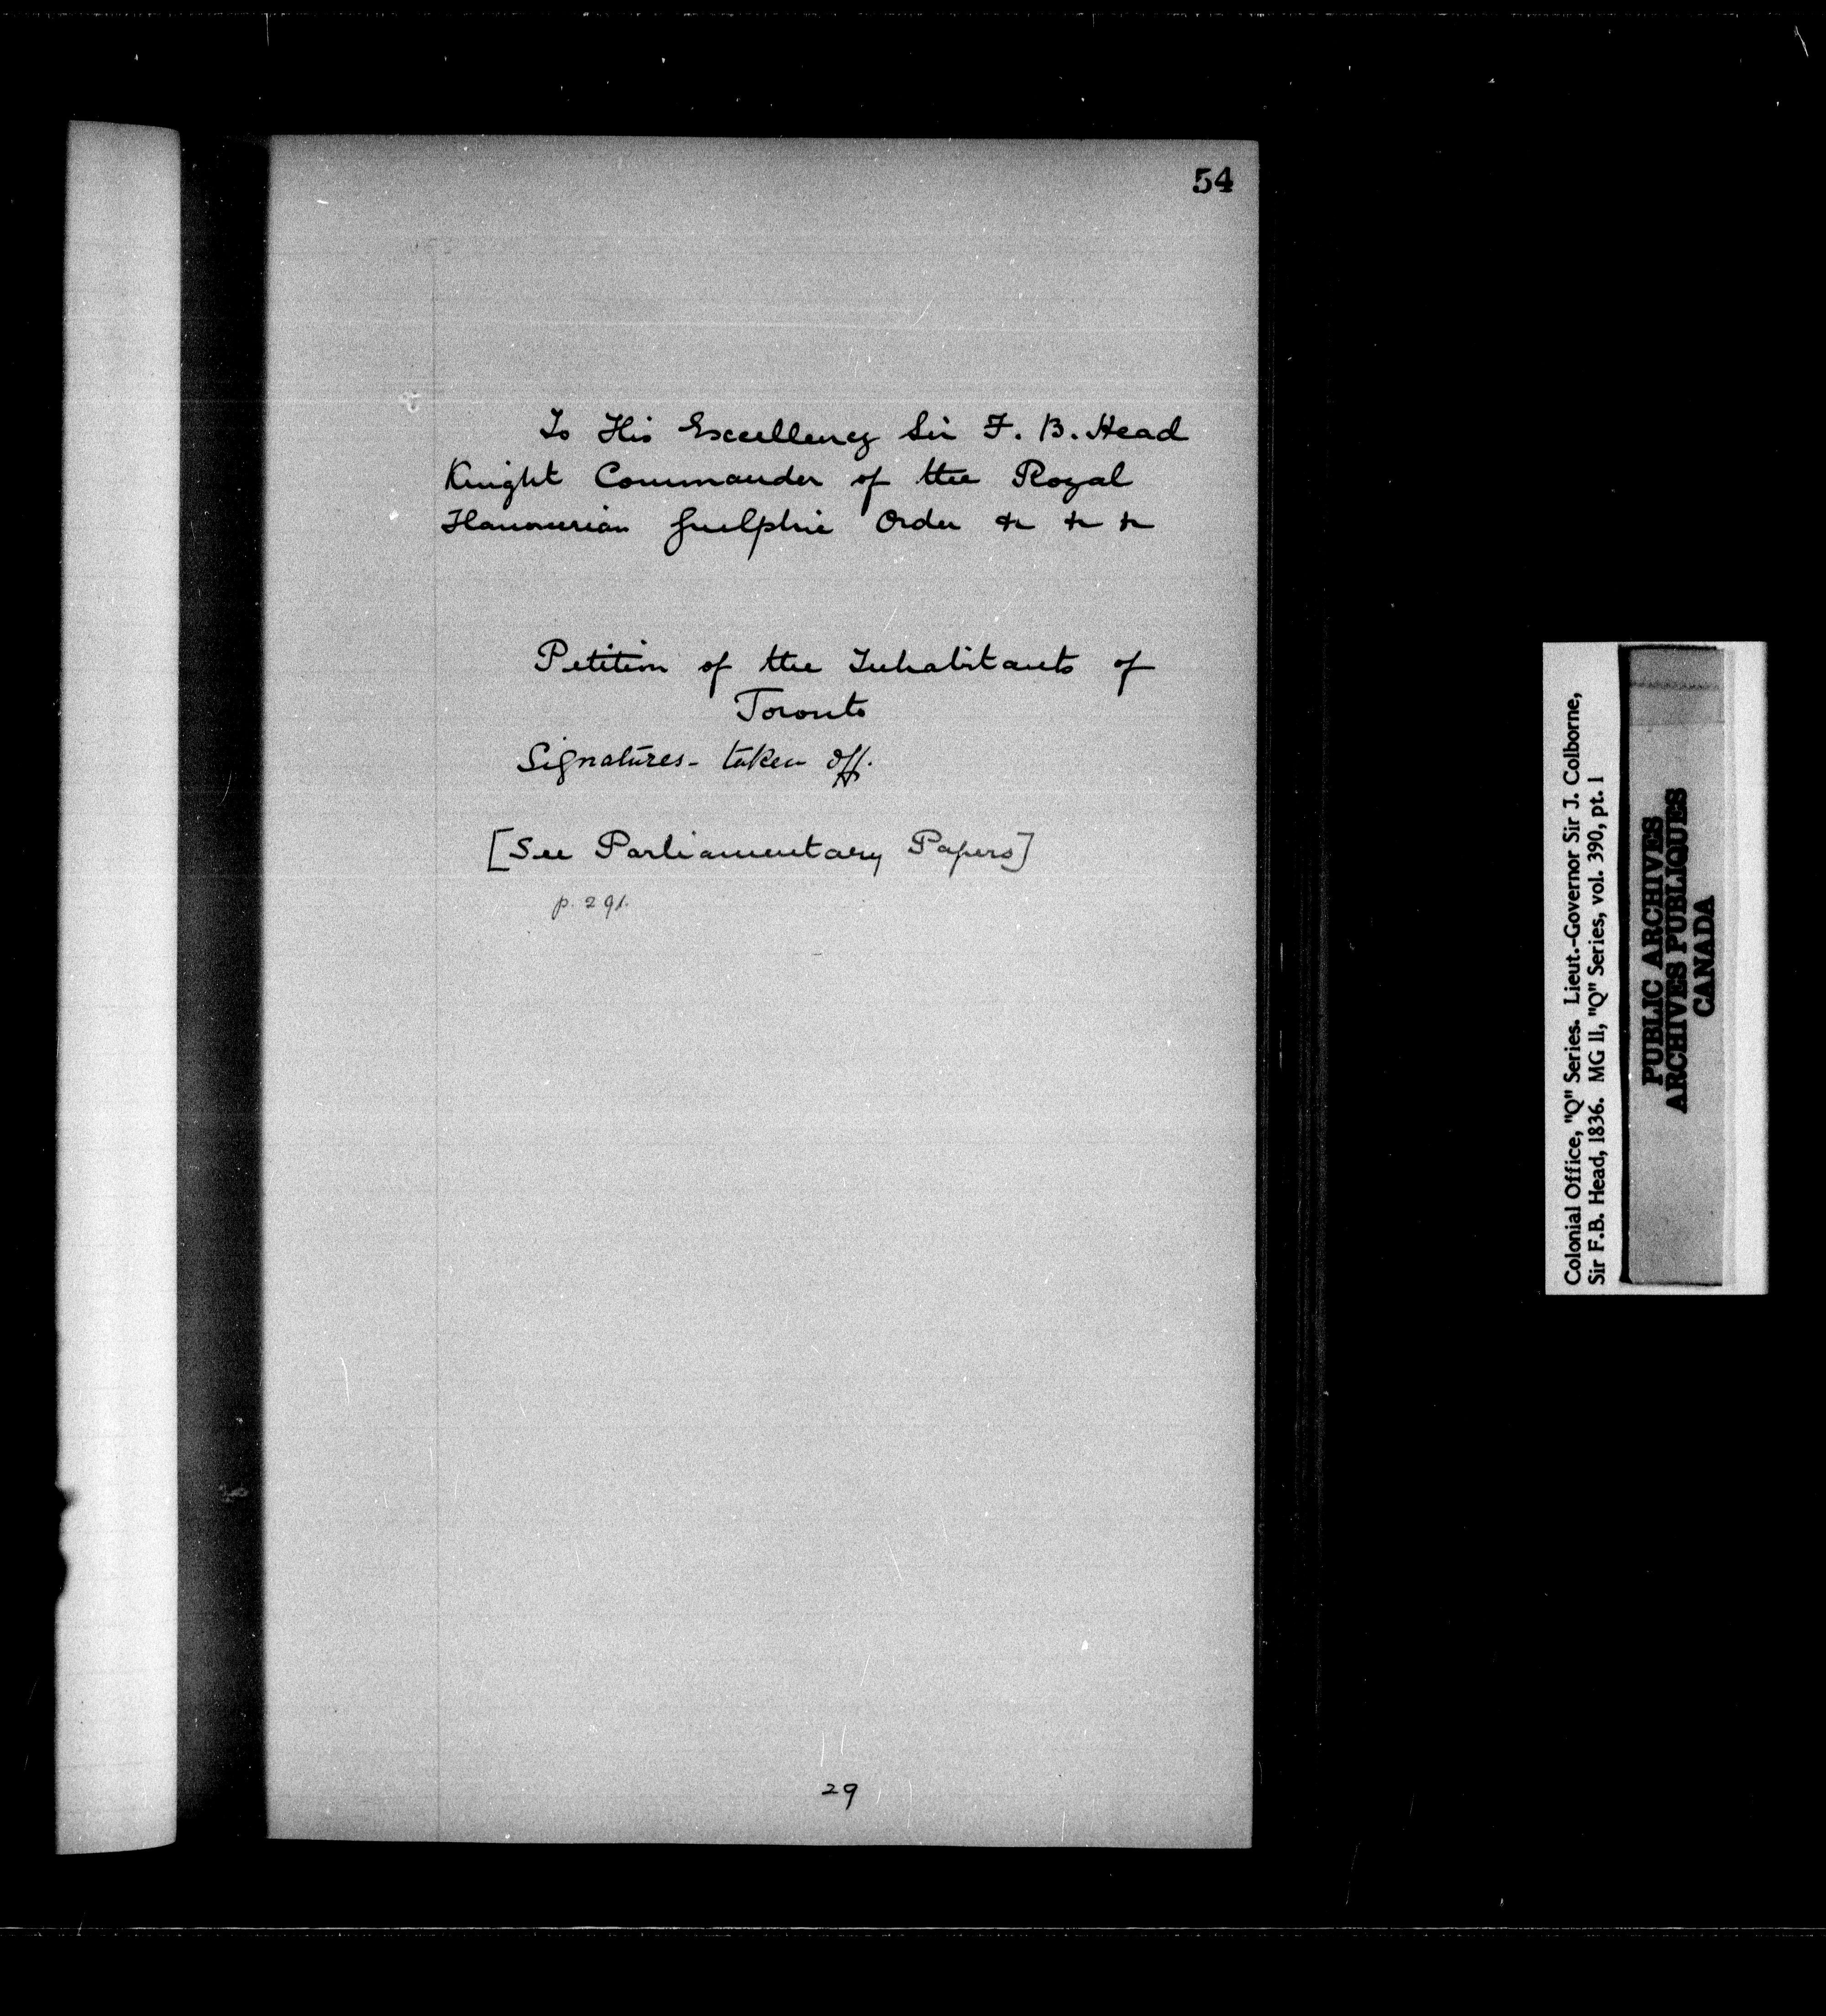 54
To His Excellency Sir F. B. Head
Knight Commander of the Royal
Hanoverian Guelphic Order &c &c &c
Petition of the Inhabitants of
Toronto
Signatures - taken off.
[See Parliamentary Papers]
p. 291.
29
Colonial Office, "Q" Series. Lieut.-Governor Sir J. Colborne,
Sir F.B. Head, 1836. MG 11, "Q" Series, vol. 390, pt. 1
PUBLIC ARCHIVES
ARCHIVES PUBLIQUES
CANADA